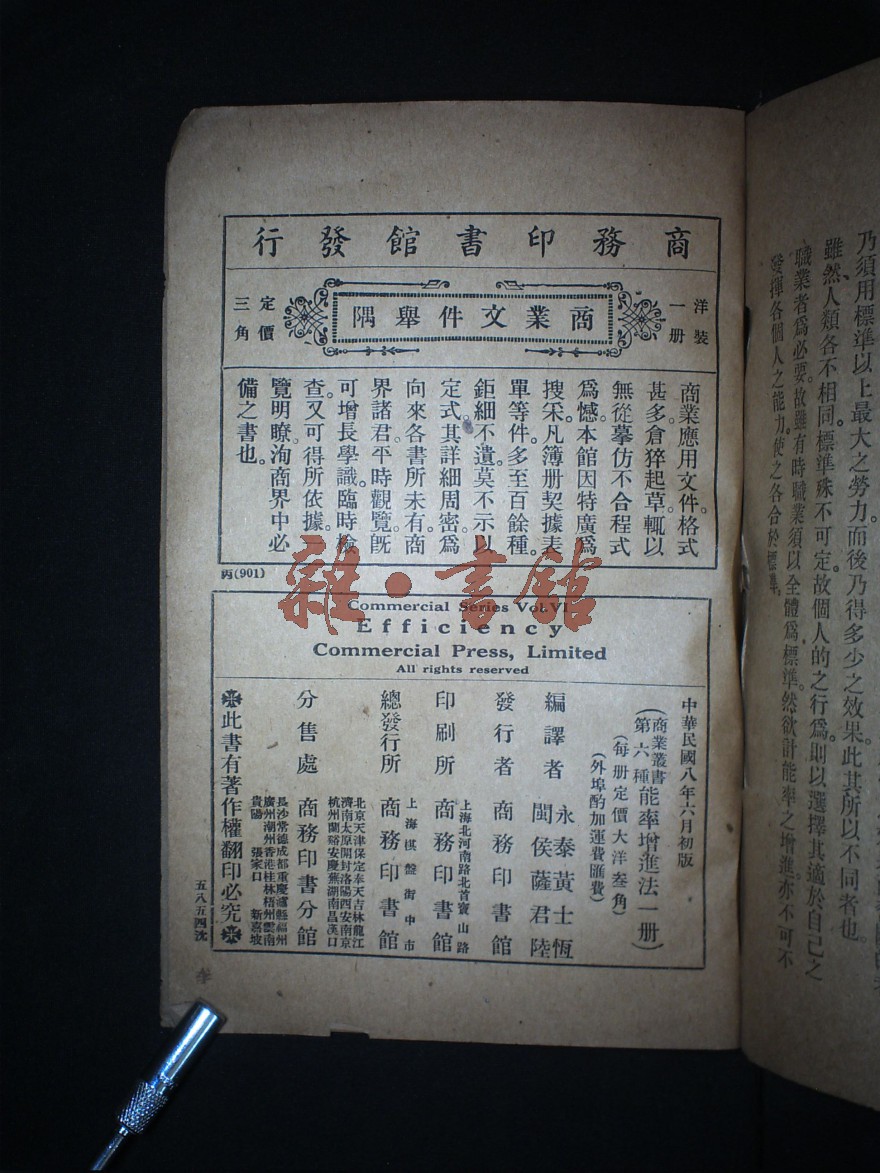 乃須用標準以上最大之勞力而後乃得多少之效果此其所以不同者也。
雖然人類各不相同。標準殊不可定。故個人的之行爲。則以選擇其適於自己之
職業者爲必要。故雖有時職業須以全體爲標準。然欲計能率之增進亦不可不
發揮各個人之能力。使之各合於標準。
商務印書館發行
洋裝一册
商業文件舉隅
定價三角
商業應用文件格式
甚多。倉猝起草。輒以
無從摹仿不合程式
爲憾。本館因特廣爲
搜采。凡簿册契據表
單等件。多至百餘種。
鉅細不遺。莫不示以
定式。其詳細周密。爲
向來各書所未有。商
界諸君。平時觀覽。旣
可增長學識。臨時檢
查。又可得所依據。一
覽明瞭。洵商界中必
備之書也。
丙(901)
Commercial Series Vol. VI
Efficiency
Commercial Press, Limited
All rights reserved
中華民國八年六月初版
(商業叢書第六種能率增進法一册)
(每册定價大洋叁角)
(外埠酌加運費匯費)
編譯者 永泰黃士恆
閩侯薩君陸
發行者 商務印書館
上海北河南路北首寶山路
印刷所 商務印書館
上海棋盤街中市
總發行所 商務印書館
北京天津保定奉天吉林龍江
濟南太原開封洛陽西安南京
杭州蘭谿安慶蕪湖南昌漢口
分售處 商務印書分館
長沙常德成都重慶瀘縣福州
廣州潮州香港桂林梧州雲南
貴陽 張家口 新嘉坡
此書有著作權翻印必究
五八五四沈
雜·書館